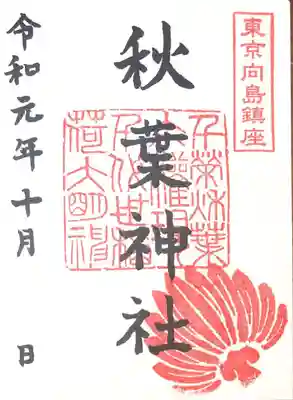 東京向島鎮座
秋葉神社
荷大明神
令和元年十月 日